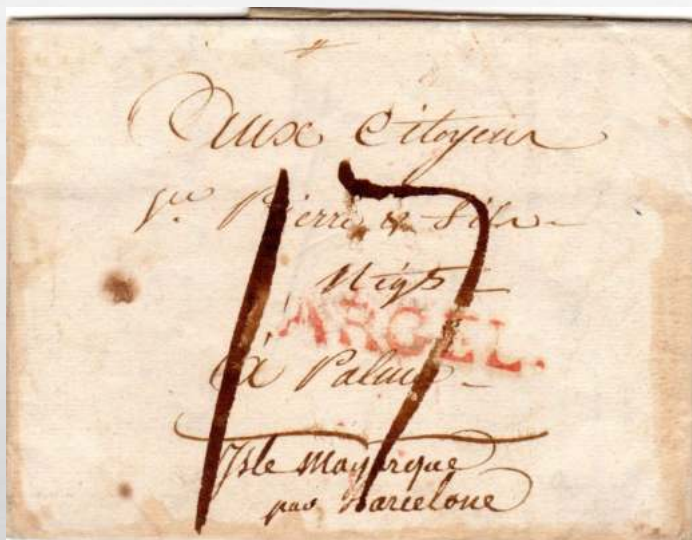 Aux Citoyens
Pierre & fils
Négts
17
ARGEL.
à Palma
Isle Mayorque
par Barcelone